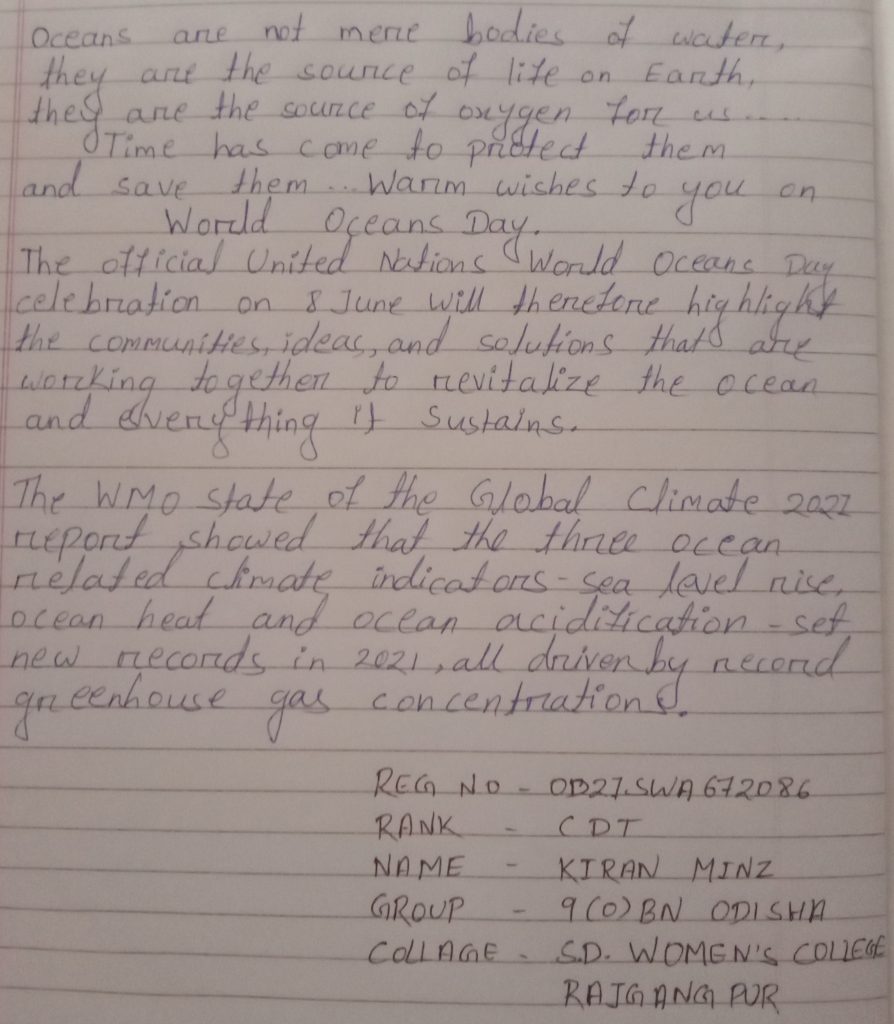 Oceans are not mere bodies of water,
they are the source of life on Earth,
they are the source of oxygen for us.....
Time has come to protect them
and save them... Warm wishes to you on
World Oceans Day.
The official United Nations World Oceans Day
celebration on 8 June will therefore highlight
the communities, ideas, and solutions that are
working together to revitalize the ocean
and everything it sustains.
The WMO state of the Global Climate 2022
report showed that the three ocean
related climate indicators - sea level rise,
ocean heat and ocean acidification - set
new records in 2021, all driven by record
greenhouse gas concentrations.
REG NO - OD21SWA672086
RANK - CDT
NAME - KIRAN MINZ
GROUP - 9(O)BN ODISHA
COLLAGE - S.D. WOMEN'S COLLEGE
RAJGANGPUR